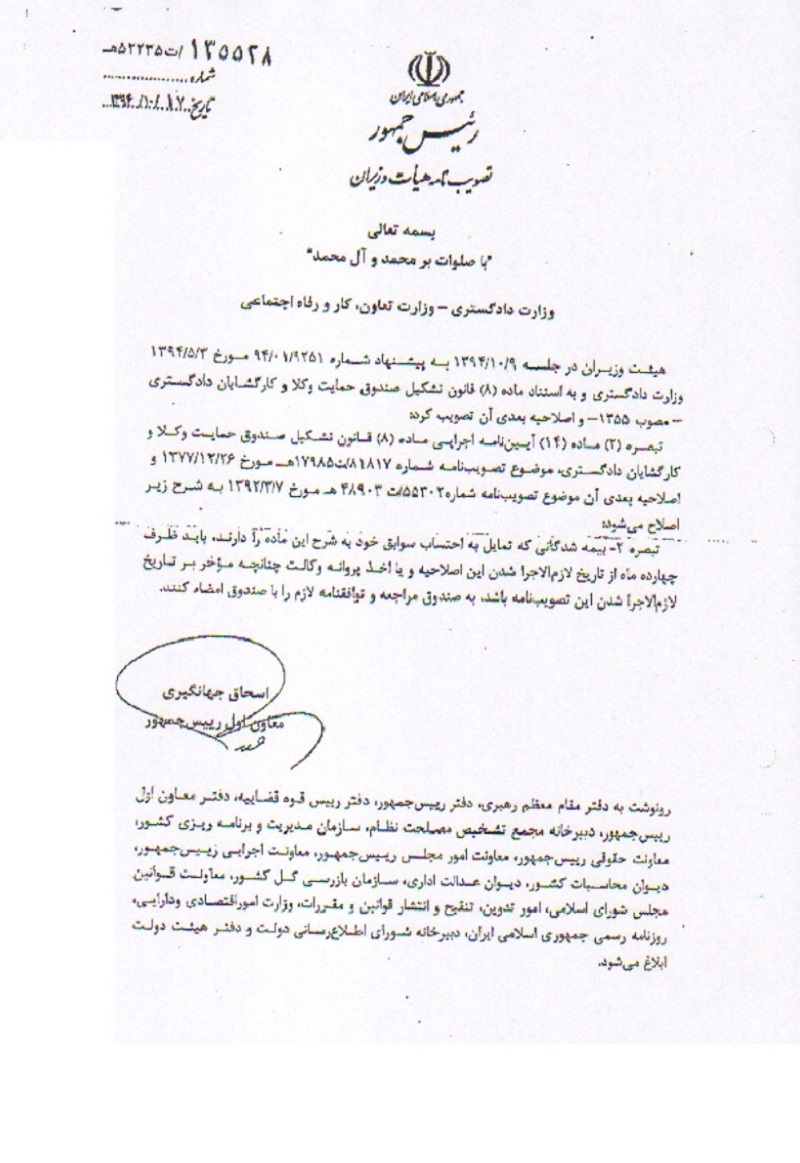 ۱۳۵۵۲۸/ت۵۲۲۳۵هـ
شماره
تاریخ ۱۳۹۴/۱۰/۱۷
جمهوری اسلامی ایران
رئیس جمهور
تصویب نامه هیأت وزیران
بسمه تعالی
"با صلوات بر محمد و آل محمد"
وزارت دادگستری – وزارت تعاون، کار و رفاه اجتماعی
هیئت وزیران در جلسه ۱۳۹۴/۱۰/۹ به پیشنهاد شماره ۹۴/۰۱/۹۲۵۱ مورخ ۱۳۹۴/۵/۳
وزارت دادگستری و به استناد ماده (۸) قانون تشکیل صندوق حمایت وکلا و کارگشایان دادگستری
– مصوب ۱۳۵۵– و اصلاحیه بعدی آن تصویب کرد:
تبصره (۲) ماده (۱۴) آیین‌نامه اجرایی ماده (۸) قانون تشکیل صندوق حمایت وکلا و
کارگشایان دادگستری، موضوع تصویب‌نامه شماره ۸۱۸۱۷/ت۱۷۹۸۵هـ مورخ ۱۳۷۷/۱۲/۲۶ و
اصلاحیه بعدی آن موضوع تصویب‌نامه شماره۵۵۳۰۲/ت ۴۸۹۰۳ هـ مورخ ۱۳۹۲/۳/۷ به شرح زیر
اصلاح می‌شود:
تبصره ۲- بیمه شدگانی که تمایل به احتساب سوابق خود به شرح این ماده را دارند، باید ظرف
چهارده ماه از تاریخ لازم‌الاجرا شدن این اصلاحیه و یا اخذ پروانه وکالت چنانچه مؤخر بر تاریخ
لازم‌الاجرا شدن این تصویب‌نامه باشد، به صندوق مراجعه و توافقنامه لازم را با صندوق امضاء کنند.
اسحاق جهانگیری
معاون اول رییس‌جمهور
رونوشت به دفتر مقام معظم رهبری، دفتر رییس‌جمهور، دفتر رییس قوه قضاییه، دفتر معاون اول
رییس‌جمهور، دبیرخانه مجمع تشخیص مصلحت نظام، سازمان مدیریت و برنامه ریزی کشور،
معاونت حقوقی رییس‌جمهور، معاونت امور مجلس رییس‌جمهور، معاونت اجرایی رییس‌جمهور،
دیوان محاسبات کشور، دیوان عدالت اداری، سازمان بازرسی کل کشور، معاونت قوانین
مجلس شورای اسلامی، امور تدوین، تنقیح و انتشار قوانین و مقررات، وزارت امور‌اقتصادی ودارایی،
روزنامه رسمی جمهوری اسلامی ایران، دبیرخانه شورای اطلاع‌رسانی دولت و دفتر هیئت دولت
ابلاغ می‌شود.